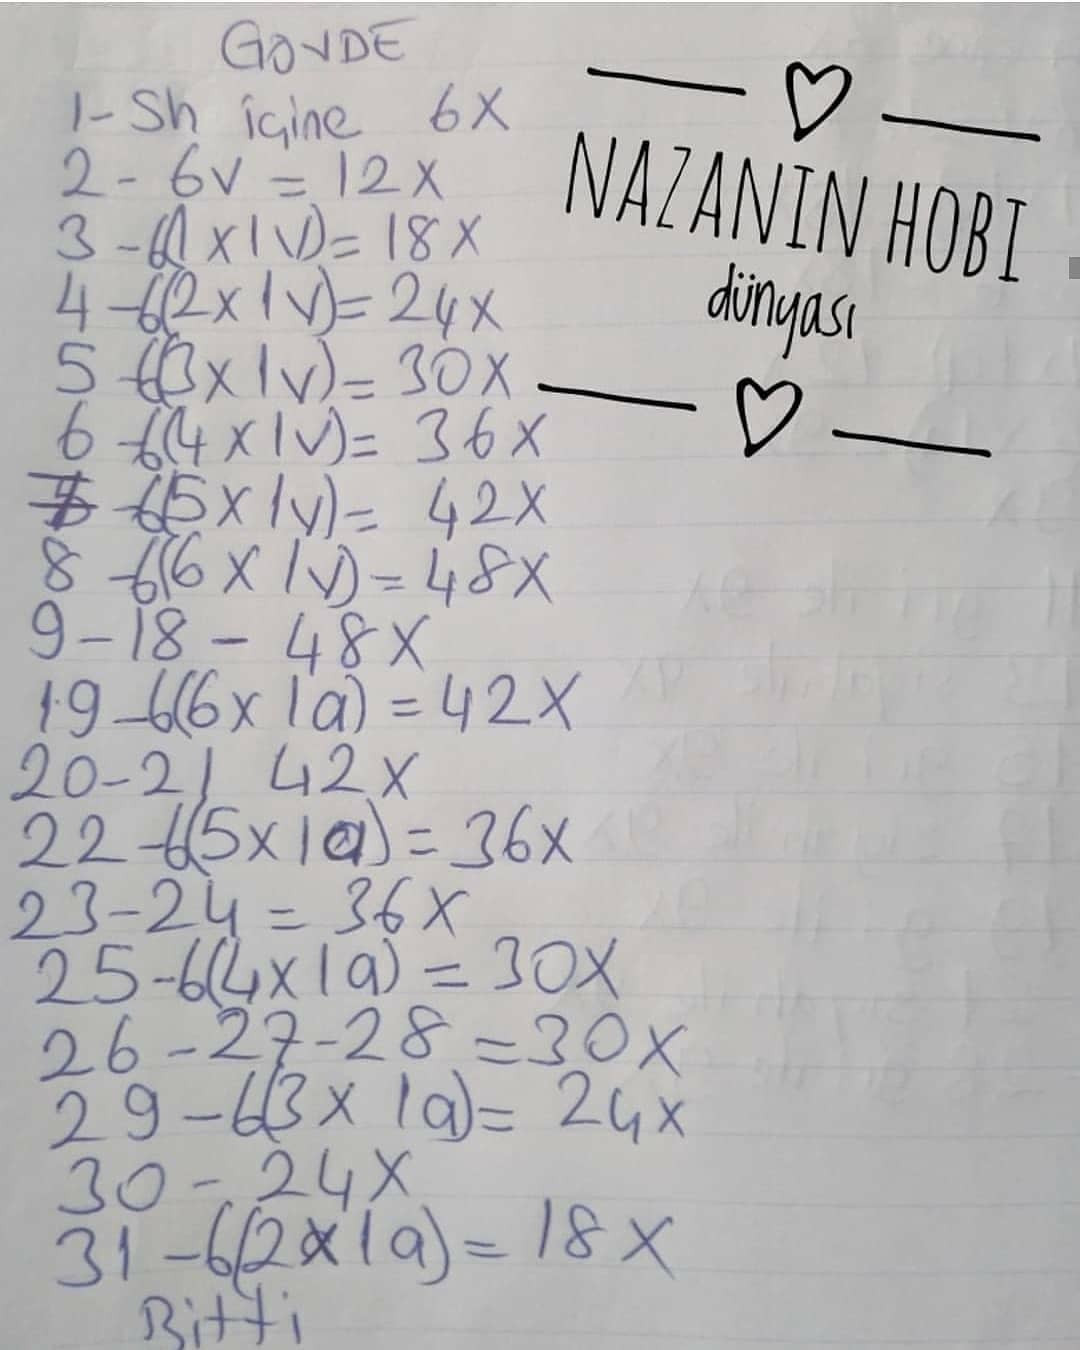 GÖVDE
1- Sh içine 6X
2- 6V = 12X
3-6(1X1V)= 18X
4-6(2X1V)= 24X
5-6(3X1V)= 30X
6-6(4X1V)= 36X
7-6(5X1V)= 42X
8-6(6X1V)= 48X
9-18- 48X
19-6(6X1a) = 42X
20-21 42X
22-6(5X1a) = 36X
23-24 = 36X
25-6(4X1a) = 30X
26-27-28 = 30X
29-6(3X1a)= 24X
30- 24X
31-6(2X1a)= 18X
Bitti
NAZANIN HOBI
dünyası